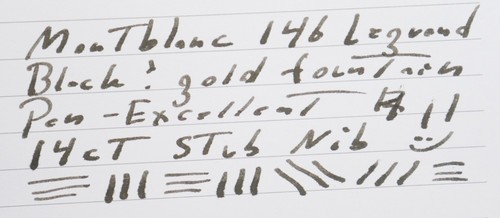 MonTblanc 146 Legrand
Black & gold founTain
Pen - Excellent !!
14cT STub Nib :)